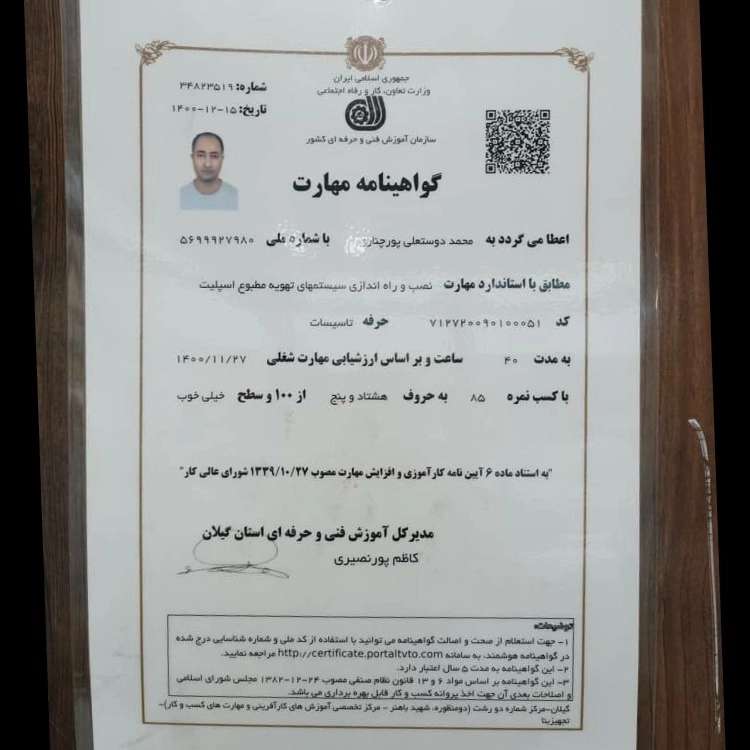 جمهوری اسلامی ایران
وزارت تعاون، کار و رفاه اجتماعی
سازمان آموزش فنی و حرفه ای کشور
شماره: ۳۴۸۲۳۵۱۹
تاریخ: ۱۴۰۰-۱۲-۱۵
گواهینامه مهارت
اعطا می گردد به محمد دوستعلی پورچناری با شماره ملی ۵۶۹۹۹۲۷۹۸۰
مطابق با استاندارد مهارت نصب و راه اندازی سیستمهای تهویه مطبوع اسپلیت
کد ۷۱۲۷۲۰۰۹۰۱۰۰۰۵۱ حرفه تاسیسات
به مدت ۴۰ ساعت و بر اساس ارزشیابی مهارت شغلی ۱۴۰۰/۱۱/۲۷
با کسب نمره ۸۵ به حروف هشتاد و پنج از ۱۰۰ و سطح خیلی خوب
"به استناد ماده ۶ آیین نامه کارآموزی و افزایش مهارت مصوب ۱۳۳۹/۱۰/۲۷ شورای عالی کار"
مدیرکل آموزش فنی و حرفه ای استان گیلان
کاظم پورنصیری
توضیحات:
۱- جهت استعلام از صحت و اصالت گواهینامه می توانید با استفاده از کد ملی و شماره شناسایی درج شده
در گواهینامه هوشمند، به سامانه http://certificate.portaltvto.com مراجعه نمایید.
۲- این گواهینامه به مدت ۵ سال اعتبار دارد.
۳- این گواهینامه بر اساس مواد ۶ و ۱۳ قانون نظام صنفی مصوب ۲۴-۱۲-۱۳۸۲ مجلس شورای اسلامی
و اصلاحات بعدی آن جهت اخذ پروانه کسب و کار قابل بهره برداری می باشد.
گیلان-مرکز شماره دو رشت (دومنظوره، شهید باهنر - مرکز تخصصی آموزش های کارآفرینی و مهارت های کسب و کار)-
تجهیزبنا